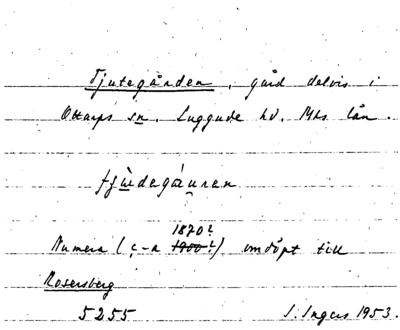 Tjutegården, gård delvis i
Ottarps sn. Luggude hd. Mhs län.
fjùdegáuren
1870?
Numera (c-a 1900?) omdöpt till
Rosersberg
5255 I. Ingers 1953.